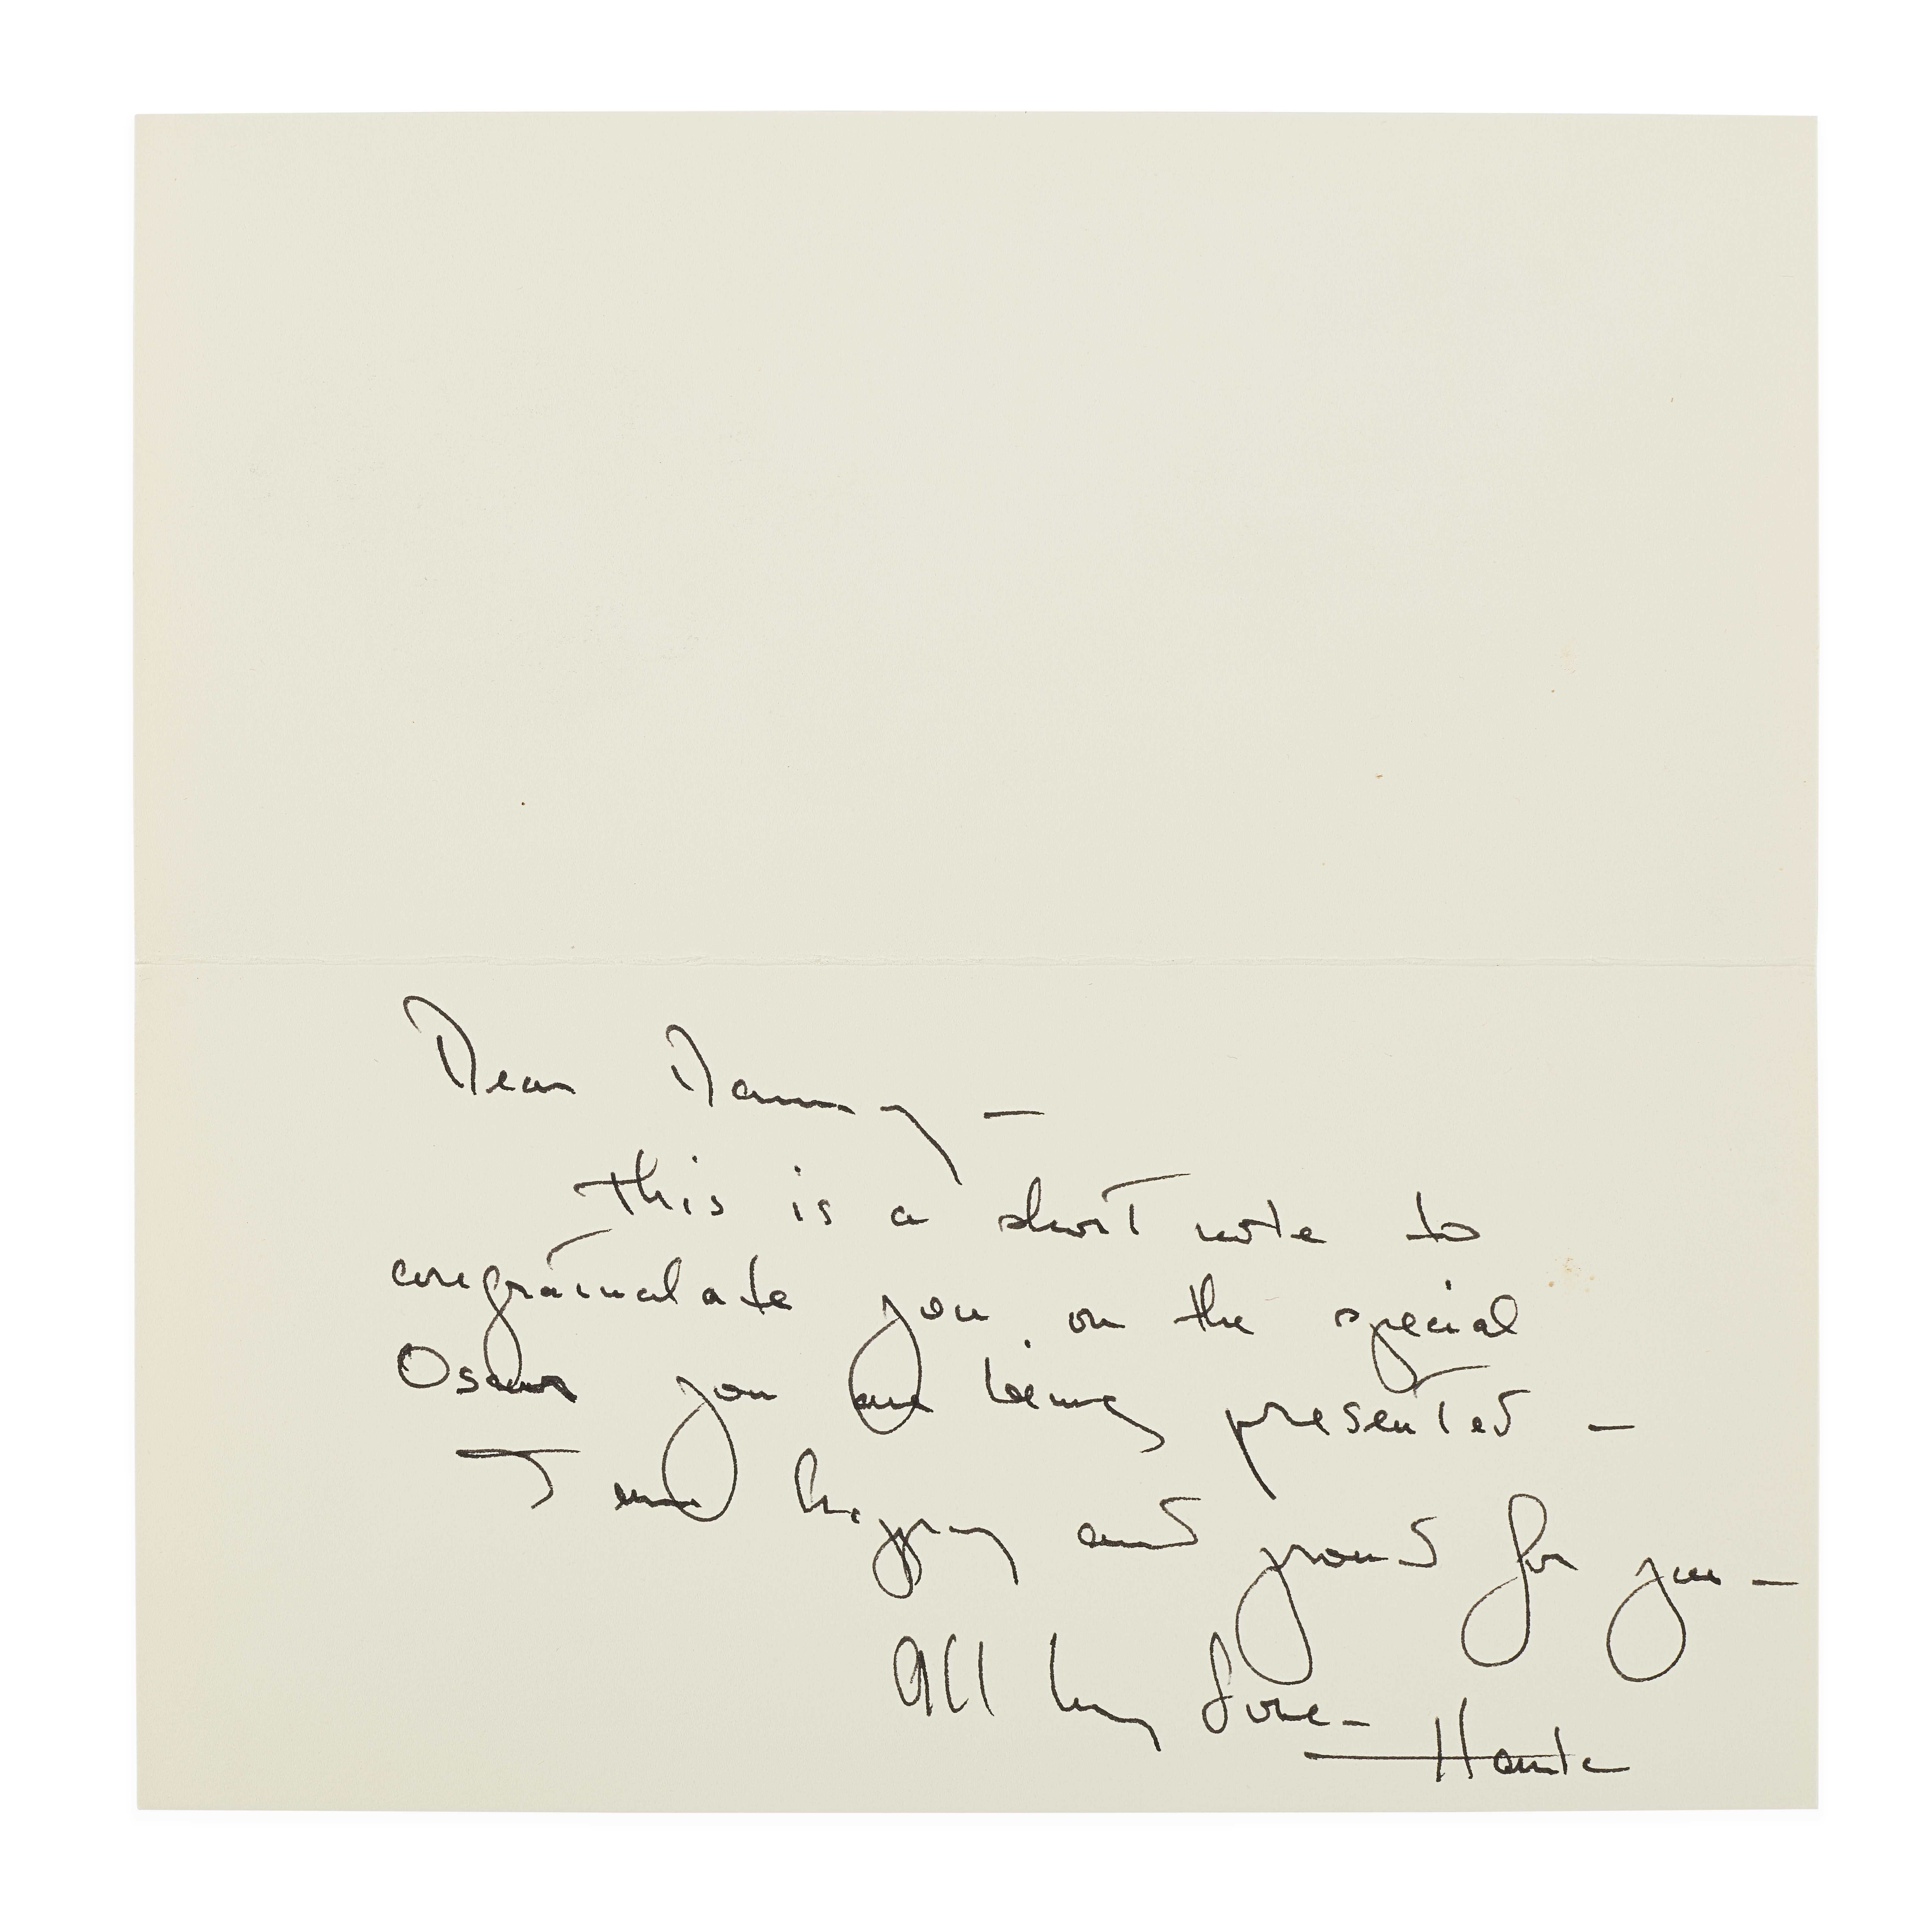 Dear Danny –
This is a short note to
congratulate you on the special
Oscar you are being presented –
I am happy and proud for you –
All my love –